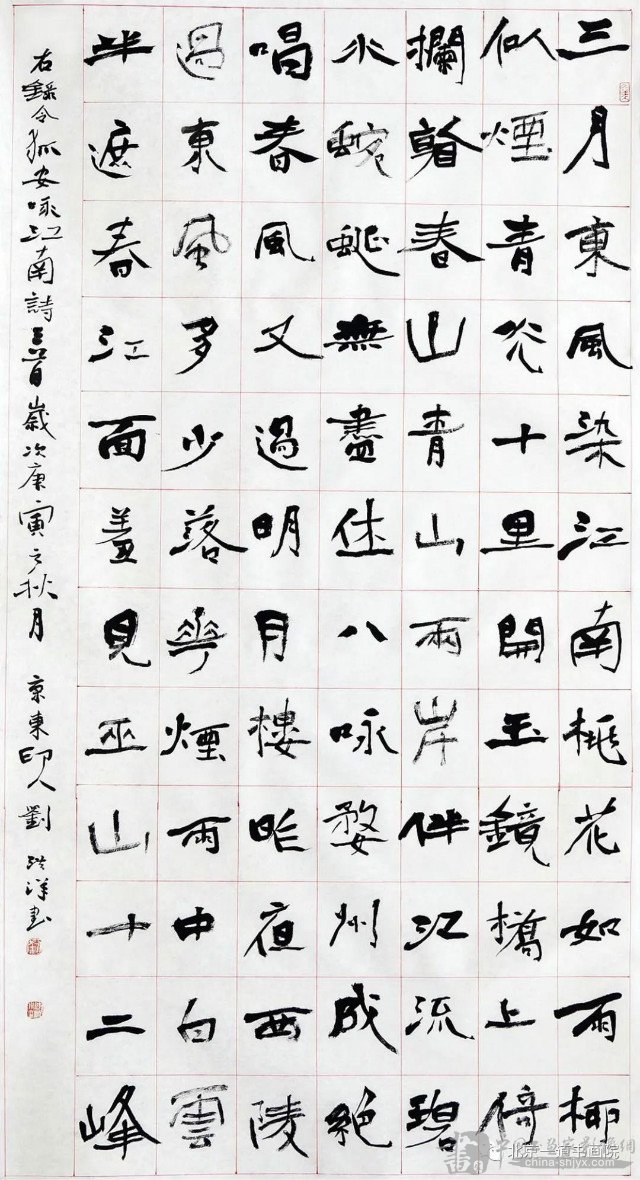 三月東風染江南桃花如雨柳
似煙青光十里開玉鏡橋上倚
攔看春山青山兩岸伴江流碧
水蜿蜒無盡休八咏婺州成絕
唱春風又過明月樓昨夜西陵
過東風多少落華煙雨中白雲
半遮春江面羞見巫山十二峰
右錄令狐安咏江南詩三首歲次庚寅之秋月 京東印人劉洪洋書